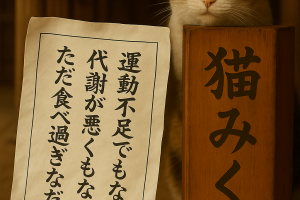 運動不足でもな
代謝が悪くもな
ただ食べ過ぎなだ
猫みく